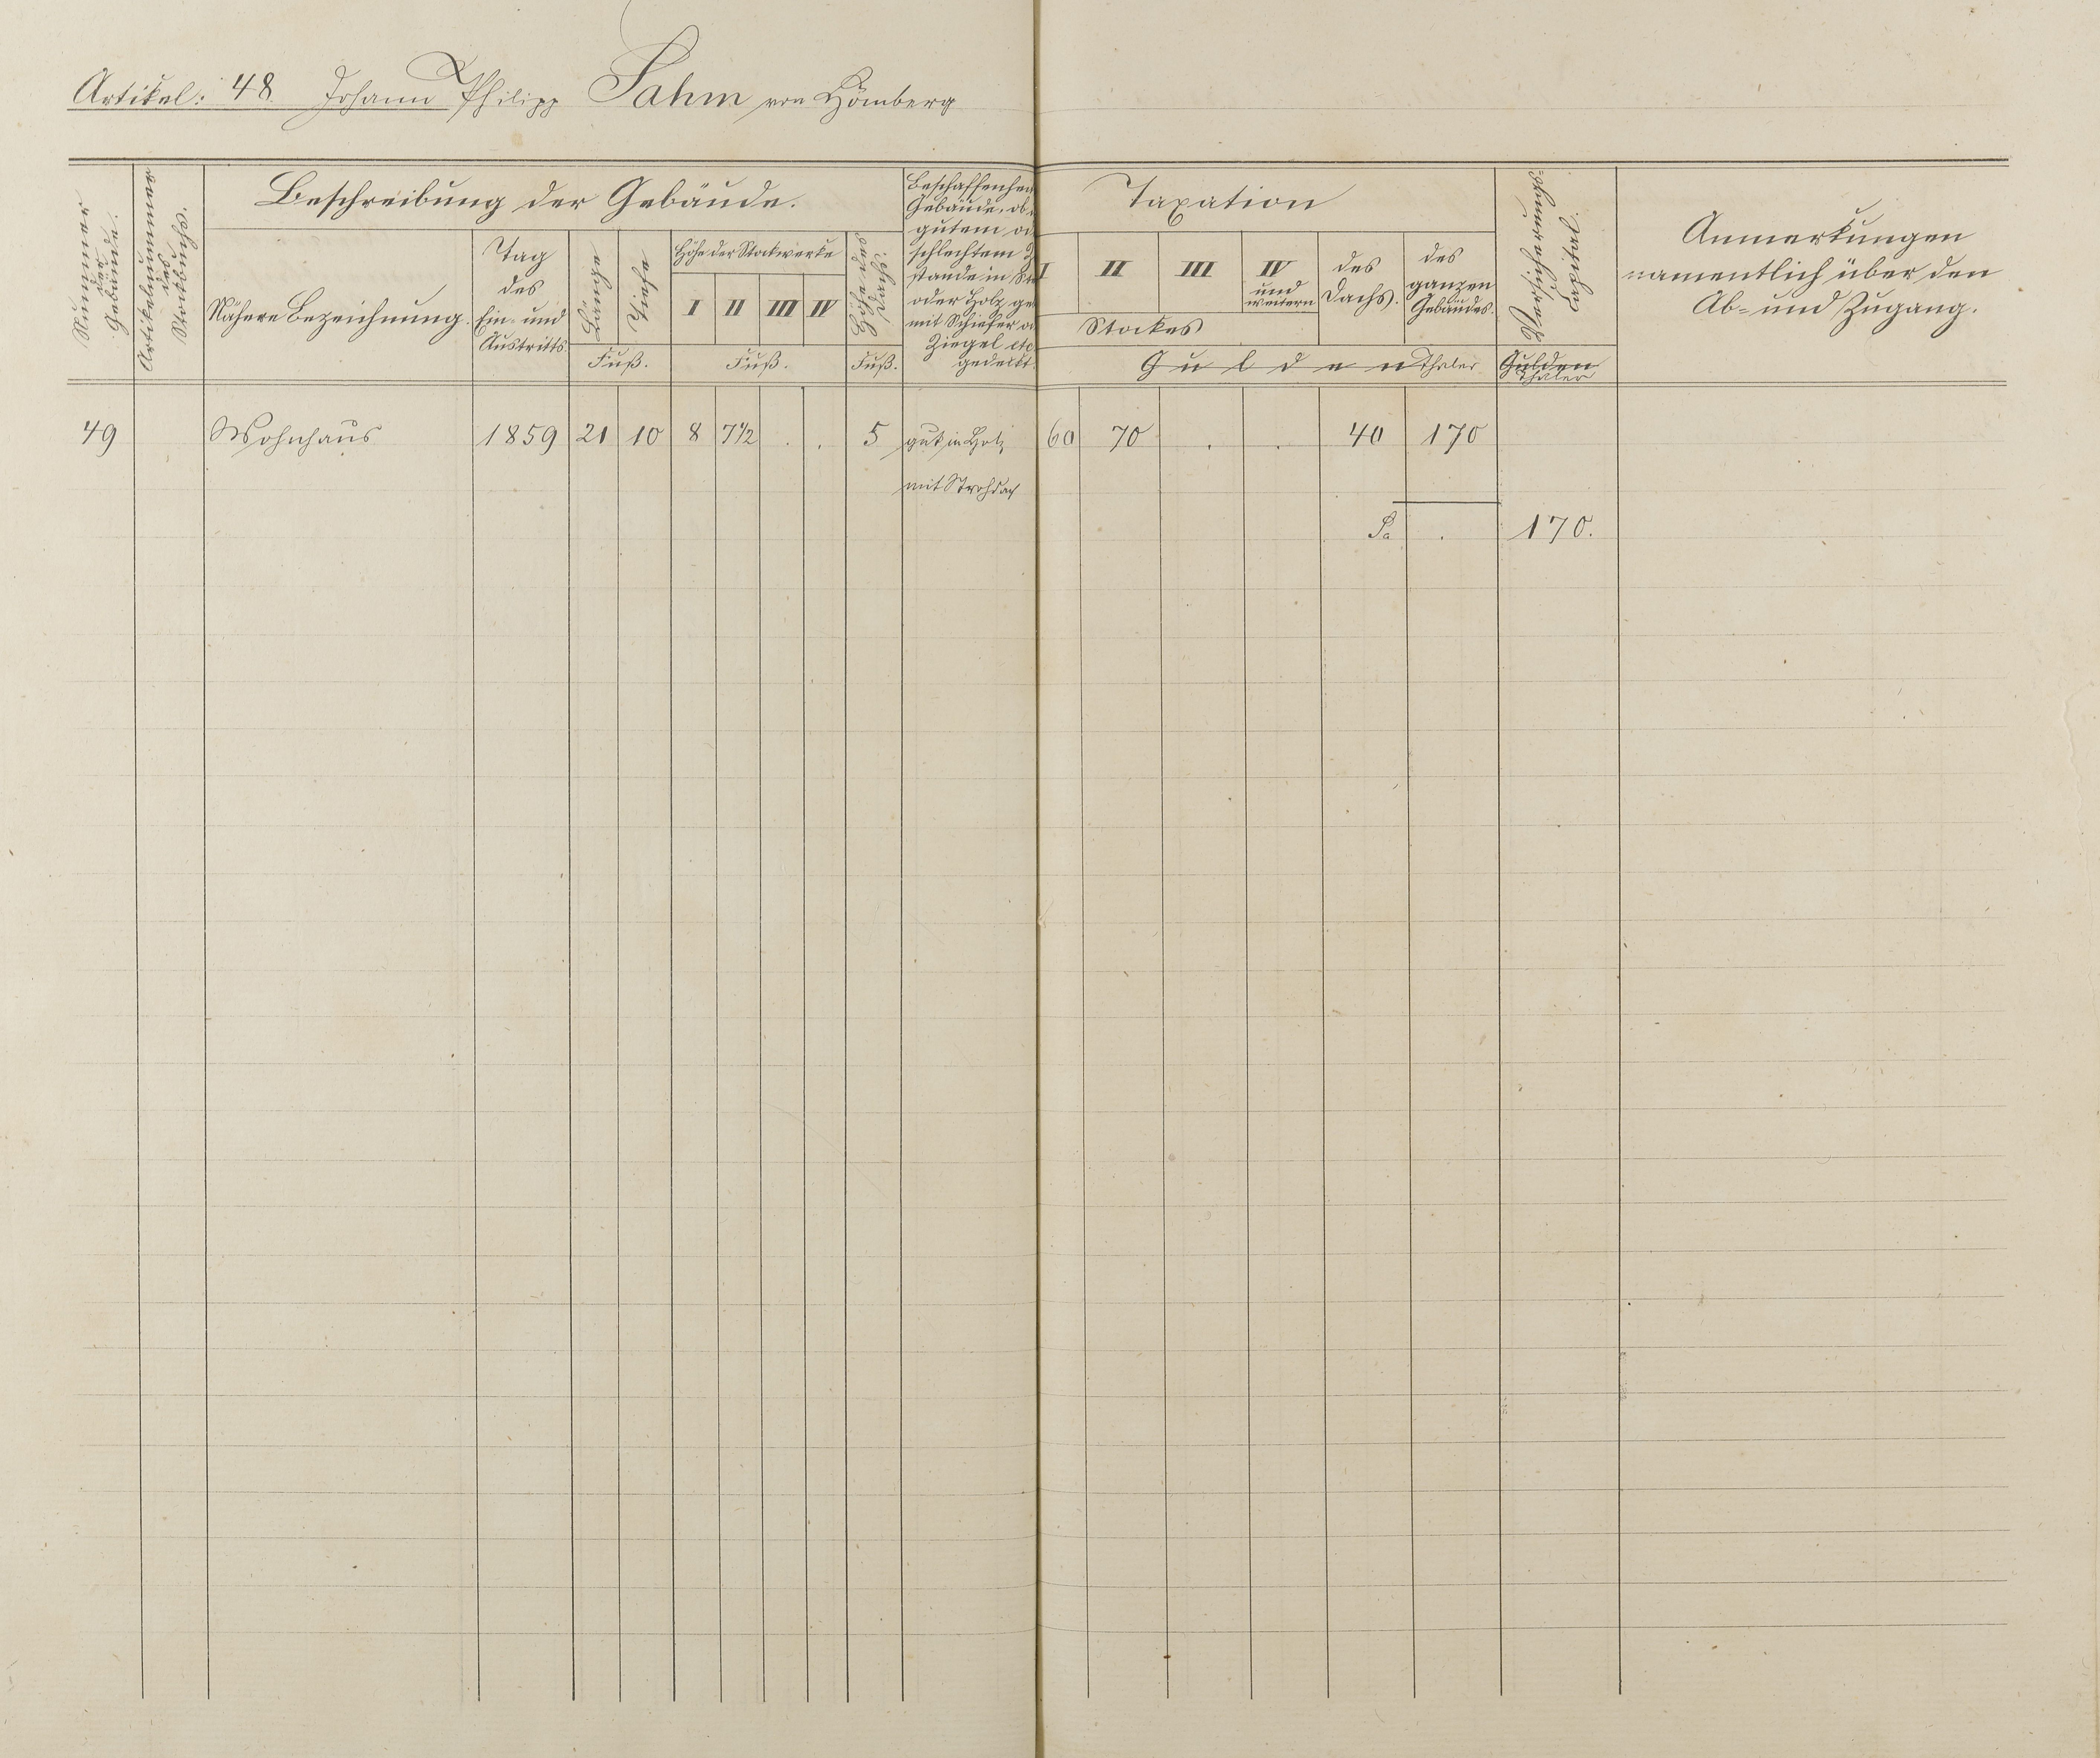 Artikel: 48 Johann Philipp Sahm von Hömberg
Nummer der Gebäude.
Artikelnummer des Stockbuchs.
Beschreibung der Gebäude.
Nähere Bezeichnung.
Tag des Ein- und Austritts
Länge
Tiefe
Fuß.
Höhe der Stockwerke
I II III IV
Fuß.
Höhe des Dachs.
Fuß.
Beschaffenhei
Gebäude, ob
gutem od
schlechtem Z
stande in Ste
oder Holz ge
mit Schiefer o
Ziegel etc
gedeckt.
Taxation
I II III IV und weitern
Stockes
des Dachs.
des ganzen Gebäudes.
Gulden Thaler
Versicherungs-Capital.
Gulden
Thaler
Anmerkungen
namentlich über den
Ab- und Zugang.
49 Wohnhaus 1859 21 10 8 7½ . . 5 gut in Holz 60 70 . . 40 170
mit Strohdach
Sa . 170.